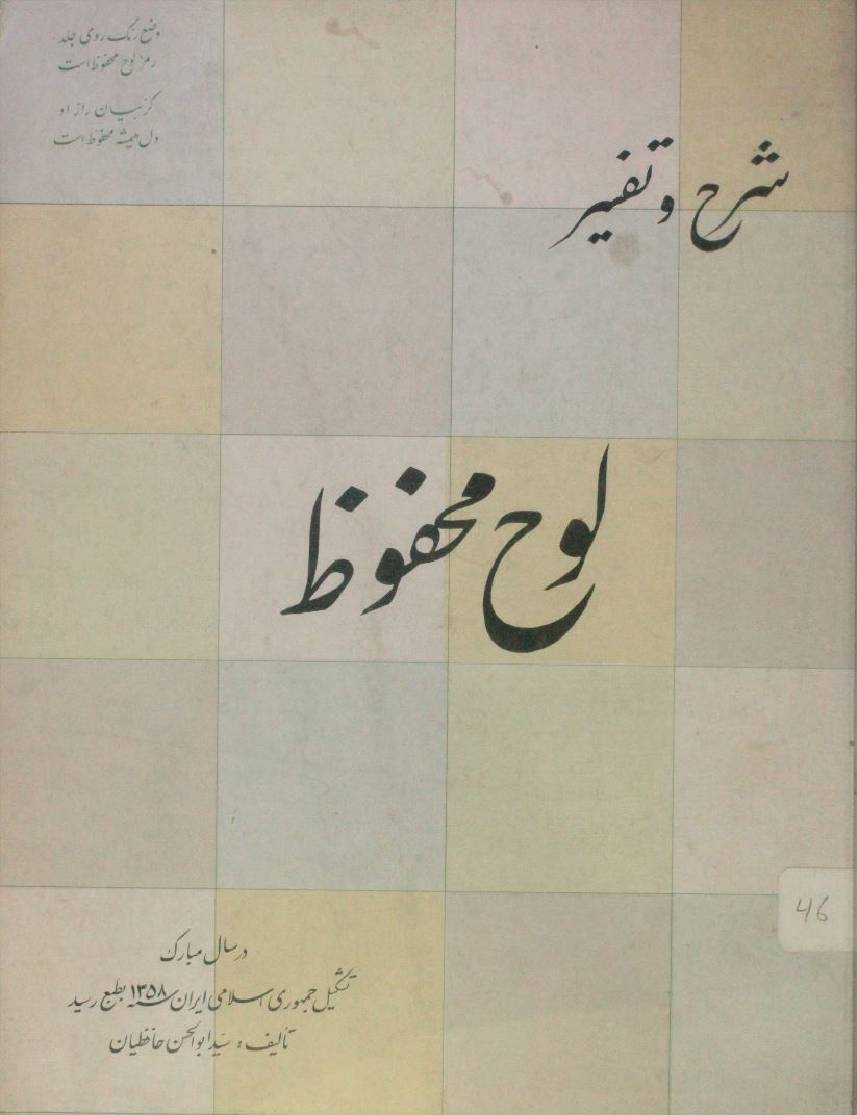 وضع رنگ روی جلد
رمز لوح محفوظ است
کز بیان راز او
دل همیشه محفوظ است
شرح و تفسیر
لوح محفوظ
46
در سال مبارک
تشکیل جمهوری اسلامی ایران سنه ۱۳۵۸ بطبع رسید
تألیف: سید ابوالحسن حافظیان